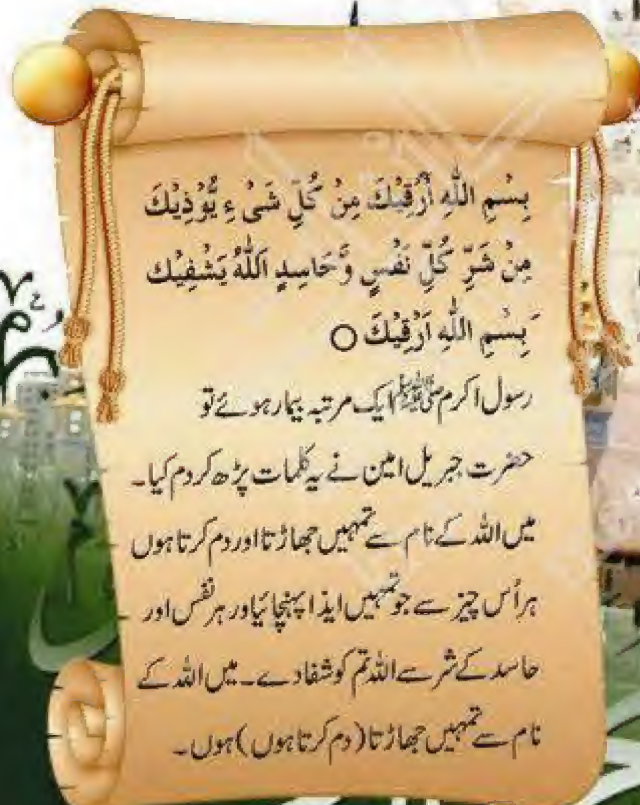 بِسْمِ اللّٰهِ أَرْقِيْكَ مِنْ كُلِّ شَىْ ءٍ يُّوْذِيْكَ
مِنْ شَرِّ كُلِّ نَفْسٍ وَّحَاسِدٍ اَللّٰهُ يَشْفِيْك
َبِسْمِ اللّٰهِ اَرْقِيْكَ ○
رسول اکرم ﷺ ایک مرتبہ بیمار ہوئے تو
حضرت جبریل امین نے یہ کلمات پڑھ کر دم کیا۔
میں اللہ کے نام سے تمہیں جھاڑتا اور دم کرتا ہوں
ہر اُس چیز سے جو تمہیں ایذا پہنچائیاور ہر نفس اور
حاسد کے شر سے اللہ تم کو شفا دے۔ میں اللہ کے
نام سے تمہیں جھاڑتا (دم کرتا ہوں) ہوں۔